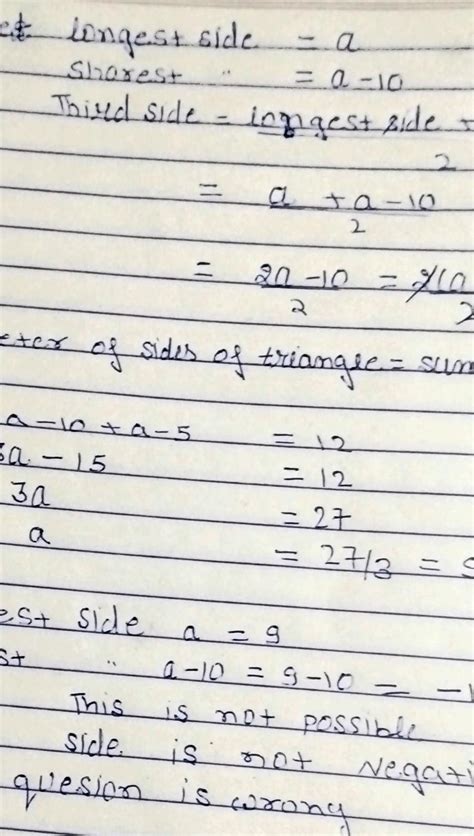 et longest side = a
sharest " = a - 10
Third side = longest side +
2
= a + a - 10
2
= 2a - 10 =
2 2
eter of sides of triangle = sum
a - 10 + a - 5 = 12
3a - 15 = 12
3a = 27
a = 27/3 =
est side a = 9
st " a - 10 = 9 - 10 = - 1
This is not possible
side is not Negati
quesion is wrong